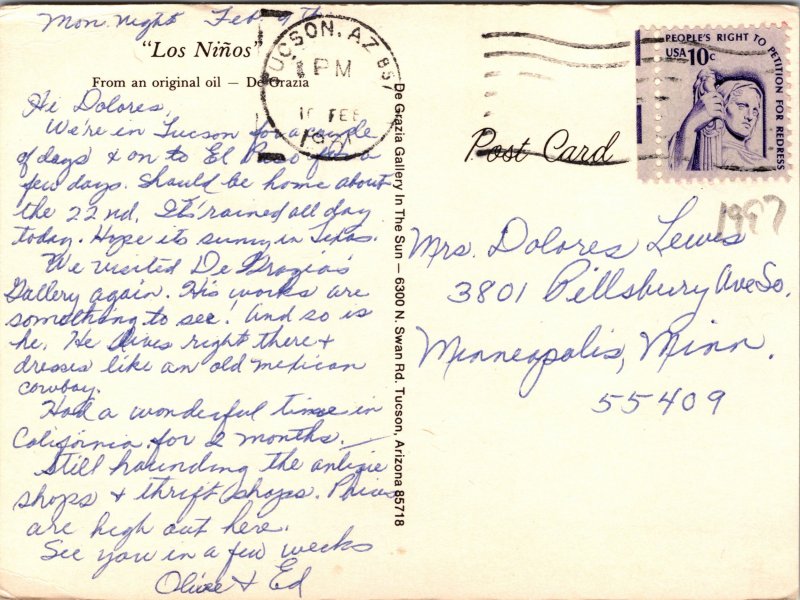 Mon. Night Feb 9th
"Los Niños"
From an original oil — De Grazia
Hi Dolores,
We're in Tucson for a couple
of days & on to El Paso for a
few days. Should be home about
the 22nd. It's rained all day
today. Hope its sunny in Texas.
We visited De Grazia's
Gallery again. His works are
something to see! And so is
he. He lives right there &
dresses like an old mexican
cowboy.
Had a wonderful time in
California for 2 months.
Still haunding the antique
shops & thrift shops. Prices
are high out here.
See you in a few weeks
Olive & Ed
De Grazia Gallery In The Sun — 6300 N. Swan Rd. Tucson, Arizona 85718
TUCSON, AZ 857
PM
10 FEB
PEOPLE'S RIGHT TO PETITION FOR REDRESS
USA 10c
Post Card
1987
Mrs. Dolores Lewis
3801 Pillsbury Ave So.
Minneapolis, Minn.
55409